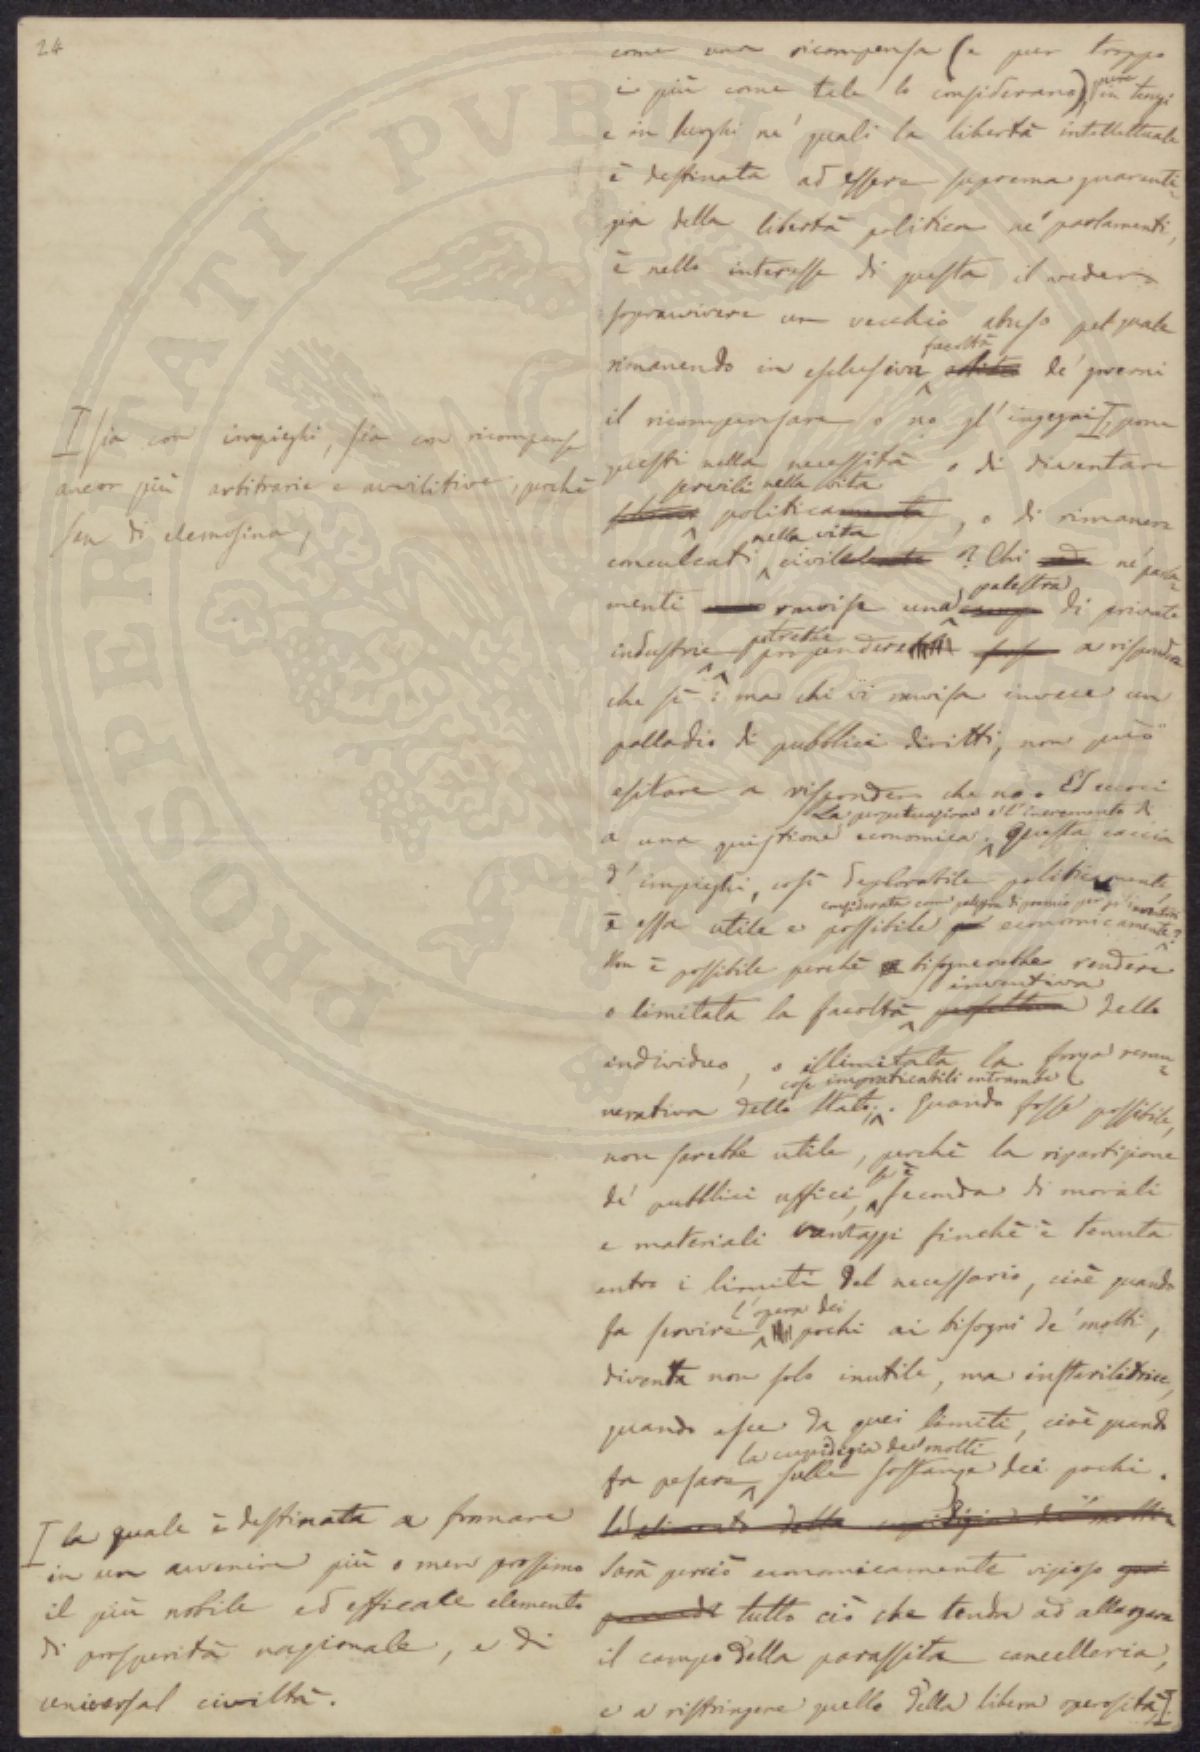 24
come una ricompensa (e pur troppo
i più come tale lo considerano), pure in tempi
e in luoghi ne' quali la libertà intellettuale
è destinata ad essere suprema guarenti-
gia della libertà politica ne' parlamenti,
è nello interesse di questa il veder
sopravvivere un vecchio abuso pel quale
rimanendo in esclusiva facoltà de' governi
il ricompensare o no gl'ingegni I, pone
questi nella necessità o di diventare
servili nella vita
politica, o di rimanere
conculcati nella vita civile? Chi ne' parla-
menti ravvisa una palestra di private
industrie potrebbe propendere a risponder
che sì: ma chi vi ravvisa invece un
palladio di pubblici diritti, non può
esitare a risponder che no. Ed eccoci
a una quistione economica. La perpetuazione e l'incremento di questa caccia
d'impieghi, così deplorabile politicamente,
è essa utile e possibile economicamente,
considerata come premio per gl'
Non è possibile perchè bisognerebbe rendere
o limitata la facoltà inventiva dello
individuo, o illimitata la forza remu-
nerativa dello Stato; cose impraticabili entrambe. Quando fosse possibile,
non sarebbe utile, perchè la ripartizione
de' pubblici uffici, se è feconda di morali
e materiali vantaggi finchè è tenuta
entro i limiti del necessario, cioè quando
fa servire l'opera dei pochi ai bisogni de' molti,
diventa non solo inutile, ma insterilitrice,
quando esce da quei limiti, cioè quando
fa pesare la cupidigia de' molti sulle sostanze dei pochi.
Sarà perciò economicamente vizioso
tutto ciò che tenda ad allargare
il campo della parassita cancelleria,
e a ristringere quello della libera operosità, I
I sia con impieghi, sia con ricompense
ancor più arbitrarie e avvilitive, perchè
san di elemosina,
I la quale è destinata a formare
in un avvenire più o men prossimo
il più nobile ed efficace elemento
di prosperità nazionale, e di
universal civiltà.
PROSPERITATI PUBLICAE